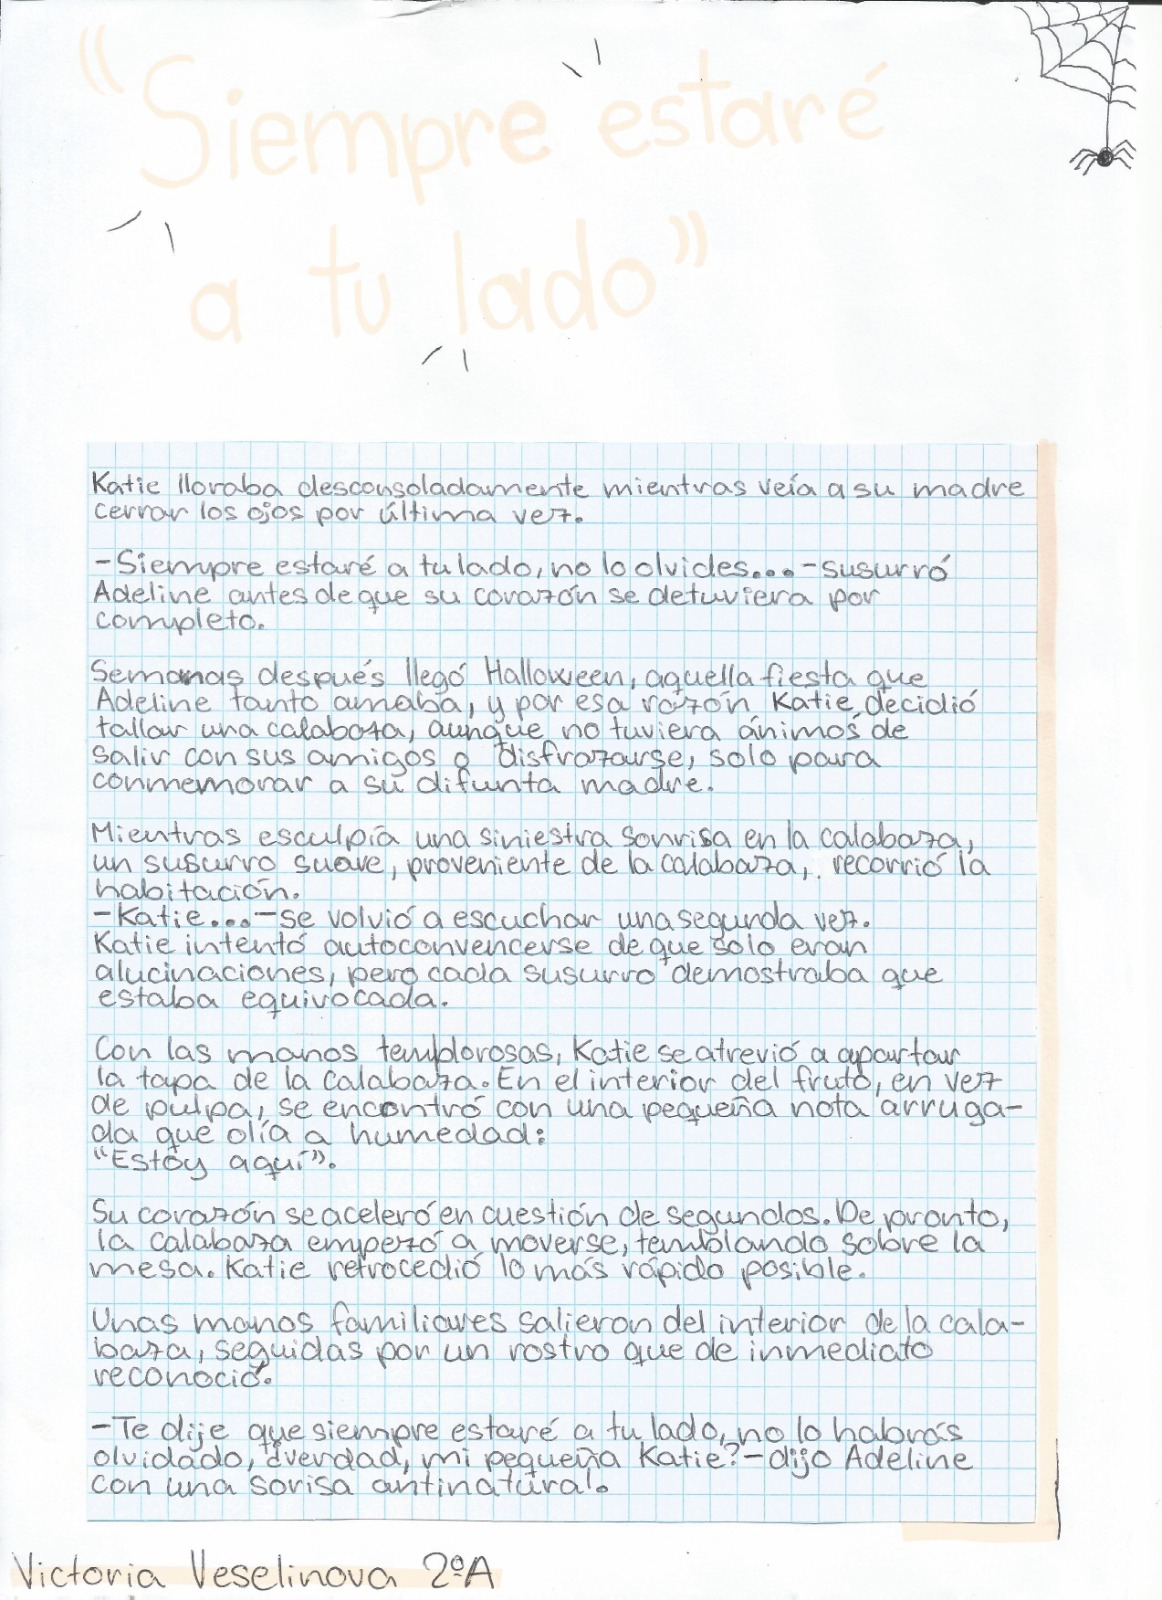 “Siempre estaré
a tu lado”
Katie lloraba desconsoladamente mientras veía a su madre
cerrar los ojos por última vez.
-Siempre estaré a tu lado, no lo olvides...-susurró
Adeline antes de que su corazón se detuviera por
completo.
Semanas después llegó Halloween, aquella fiesta que
Adeline tanto amaba, y por esa razón Katie decidió
tallar una calabaza, aunque no tuviera ánimos de
salir con sus amigos o disfrazarse, solo para
conmemorar a su difunta madre.
Mientras esculpía una siniestra sonrisa en la calabaza,
un susurro suave, proveniente de la calabaza, recorrió la
habitación.
-Katie...-se volvió a escuchar una segunda vez.
Katie intentó autoconvencerse de que solo eran
alucinaciones, pero cada susurro demostraba que
estaba equivocada.
Con las manos temblorosas, Katie se atrevió a apartar
la tapa de la calabaza. En el interior del fruto, en vez
de pulpa, se encontró con una pequeña nota arruga-
da que olía a humedad:
“Estoy aquí”.
Su corazón se aceleró en cuestión de segundos. De pronto,
la calabaza empezó a moverse, temblando sobre la
mesa. Katie retrocedió lo más rápido posible.
Unas manos familiares salieron del interior de la cala-
baza, seguidas por un rostro que de inmediato
reconoció.
-Te dije que siempre estaré a tu lado, no lo habrás
olvidado, ¿verdad, mi pequeña Katie?-dijo Adeline
con una sorisa antinatural.
Victoria Veselinova 2ºA